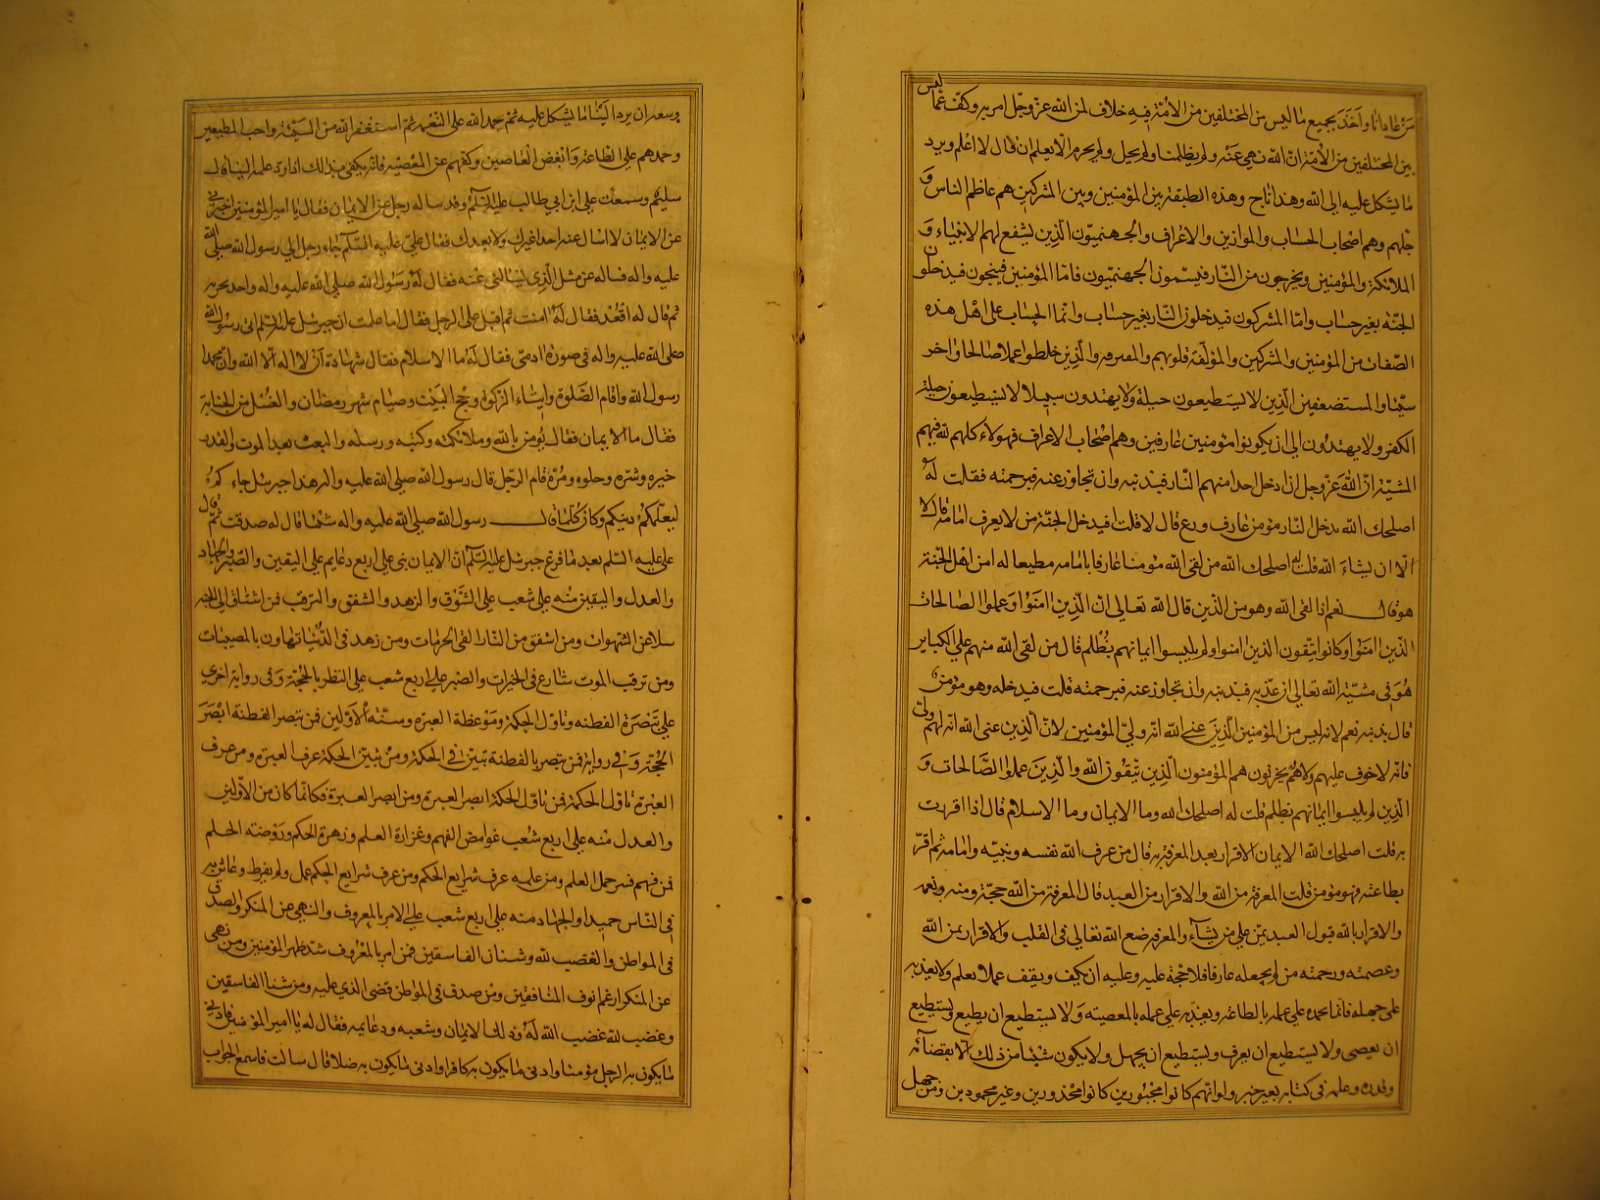 من عادانا واخذ بجميع ما ليس بين المختلفين من الامة فيه خلاف لمن الله عز وجل امر به وكف عما ليس
بين المختلفين من الامة ان الله نهى عنه ولم يظلمنا ولم يحل ولم يحرم الا يعلم ان قال لا اعلم ويرد
ما يشكل عليه الى الله وهذا ناج وهذه الطبقة بين المؤمنين وبين المشركين هم عاظم الناس و
جلهم وهم اصحاب الحساب والموازين والاعراف والجهنميون الذين يشفع لهم الانبياء و
الملائكة والمؤمنين ويخرجون من النار فيسمون الجهنميون فاما المؤمنين فينجون فيدخلون
الجنة بغير حساب واما المشركون فيدخلون النار بغير حساب وانما الحساب على اهل هذه
الصفات من المؤمنين والمشركين والمؤلفة قلوبهم والمعترفة والذين خلطوا عملا صالحا واخر
سيئا والمستضعفين الذين لا يستطيعون حيلة ولا يهتدون سبيلا لا يستطيعون حيلة
الكفر ولا يهتدون الى ان يكونوا مؤمنين عارفين وهم اصحاب الاعراف فهولاء كلهم لله فيهم
المشية ان الله عز وجل ان ادخل احدا منهم النار فبذنبه وان تجاوز عنه فبرحمته فقلت له
اصلحك الله يدخل النار مؤمن عارف ودع قال لا قلت افيدخل الجنة من لا يعرف امامه قال لا
الا ان يشاء الله قلت له اصلحك الله من لقى الله مؤمنا عارفا بامامه مطيعا له امن اهل الجنة
هو قال نعم اذا لقى الله وهو من الذين قال الله تعالى ان الذين امنوا وعملوا الصالحات
الذين امنوا وكانوا يتقون الذين امنوا ولم يلبسوا ايمانهم بظلم قال من لقى الله منهم على الكباير
هو في مشية الله تعالى ان عذبه فبذنبه وان تجاوز عنه فبرحمته قلت فيدخله وهو مؤمن
قال بذنبه نعم لانه ليس من المؤمنين الذين عنى الله انه ولى المؤمنين لان الذين عنى الله انه لهم ولى
فانه لا خوف عليهم ولا هم يحزنون هم المؤمنون الذين يتقون الله والذين عملوا الصالحات و
الذين لم يلبسوا ايمانهم بظلم قلت له اصلحك الله وما الايمان وما الاسلام قال اذا اقررت
به قلت اصلحك الله الايمان الاقرار بعد المعرفة به قال من عرف الله نفسه ونبيه وامامه ثم اقر
بطاعته فهو مؤمن قلت المعرفة من الله والاقرار من العبد قال المعرفة من الله حجة ومنه ونعمه
والاقرار بالله قبول العبد يمن على من يشاء والمعرفة صنع الله تعالى في القلب والاقرار بمن الله
وعصمته ورحمته من لم يجعله عارفا فلا حجة عليه وعليه ان يكف ويقف عما لا يعلم ولا يعذبه
على جهله فانما يحمده على عمله بالطاعة ويعذبه على عمله بالمعصيته ولا يستطيع ان يطيع ويستطيع
ان يعصى ولا يستطيع ان يعرف ويستطيع ان يجهل ولا يكون شيئا من ذلك الا بقضائه
وقدره وعلمه في كتابه بغير جبر ولو انهم كانوا مجبورين كانوا معذورين وغير محمودين ومن جهل
وسعه ان يرد الينا ما يشكل عليه ثم يحمد الله على النعمة ثم استغفر الله من السيئة واحب المطيعين
وحمدهم على الطاعة وابغض العاصين وكفهم عن المعصيه فانه يكفى بذلك اذا رد علمه الينا قال
سليم وسمعت على ابن ابي طالب عليه السلم وقد ساله رجل عن الايمان فقال يا امير المؤمنين اخبرني
عن الايمان لا اسال عنه احدا غيرك ولا بعدك فقال علي عليه السلم جاء رجل الى رسول الله صلى الله
عليه واله فساله عن مثل الذي ليسالني عنه فقال له رسول الله صلى الله عليه واله واحد يحدثه
ثم قال له اقعد فقال له امنت ثم اقبل على الرجل فقال اما علمت ان جبرئيل عليه السلم اتى رسول الله
صلى الله عليه واله في صورة ادمى فقال له ما الاسلام فقال شهادة ان لا اله الا الله وان محمدا
رسول الله واقام الصلوة وايتاء الزكوة وحج البيت وصيام شهر رمضان والغسل من الجنابة
فقال ما الايمان فقال يؤمن بالله وملائكته وكتبه ورسله والبعث بعد الموت والقدر
خيره وشره وحلوه ومره قام الرجل قال رسول الله صلى الله عليه واله هذا جبرئيل جاءكم
ليعلمكم دينكم وكان كلما قال رسول الله صلى الله عليه واله شيئا قال له صدقت ثم قال
على عليه السلم بعد ما فرغ جبرئيل عليه السلم ان الايمان بنى على اربع دعايم على اليقين والصبر والجهاد
والعدل واليقين منه على شعب على الشوق والزهد والشفق والترقب فمن اشتاق الى الجنة
سلا عن الشهوات ومن اشفق من النار اتقى الحرمات ومن زهد في الدنيا تهاون بالمصيبات
ومن ترقب الموت سارع في الخيرات والصبر على اربع شعب على النظر بالحجة وفي رواية اخرى
على تبصرة الفطنه وتاول الحكمة وموعظة العبرة وسنة الاولين فمن تبصر الفطنة ابصر
الحجة وفي رواية فمن تبصر بالفطنة تبين في الحكمة ومن تبين الحكمة عرف العبرة ومن عرف
العبرة تاول الحكمة فمن تاول الحكمة ابصر العبرة ومن ابصر العبرة فكانما كان من الاولين
والعدل منه على اربع شعب غوامض الفهم وغزارة العلم وزهرة الحكم وروضة الحلم
فمن فهم فسر جمل العلم ومن علمه عرف شرايع الحكم ومن عرف شرايع الحكم عمل ولم يفرط وعاش به
في الناس حميدا والجهاد منه على اربع شعب على الامر بالمعروف والنهى عن المنكر والصدق
في المواطن والغضب لله وشنان الفاسقين فمن امر بالمعروف شد ظهر المؤمنين ومن نهى
عن المنكر ارغم انوف المنافقين ومن صدق في المواطن قضى الذي عليه ومن شنا الفاسقين
وغضب لله غضب الله له وذلك الايمان وشعبه ودعايمه فقال له يا امير المؤمنين فادنى
ما يكون به الرجل مؤمنا وادنى ما يكون به كافرا وادنى ما يكون به ضالا قال سالت فاسمع الجواب